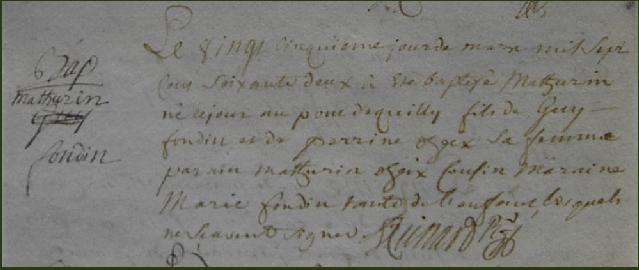 Bap
Mathurin
Guy
fondin
Le vingt cinquiesme jour de mars mil sept
cens soixante deux a ete baptisé Mathurin
né ce jour au pont de quilly fils de Guy
fondin et de perrine choix sa femme
parain mathurin choix cousin maraine
Marie fondin tante de l'enfant lesquels
ne scavent signer